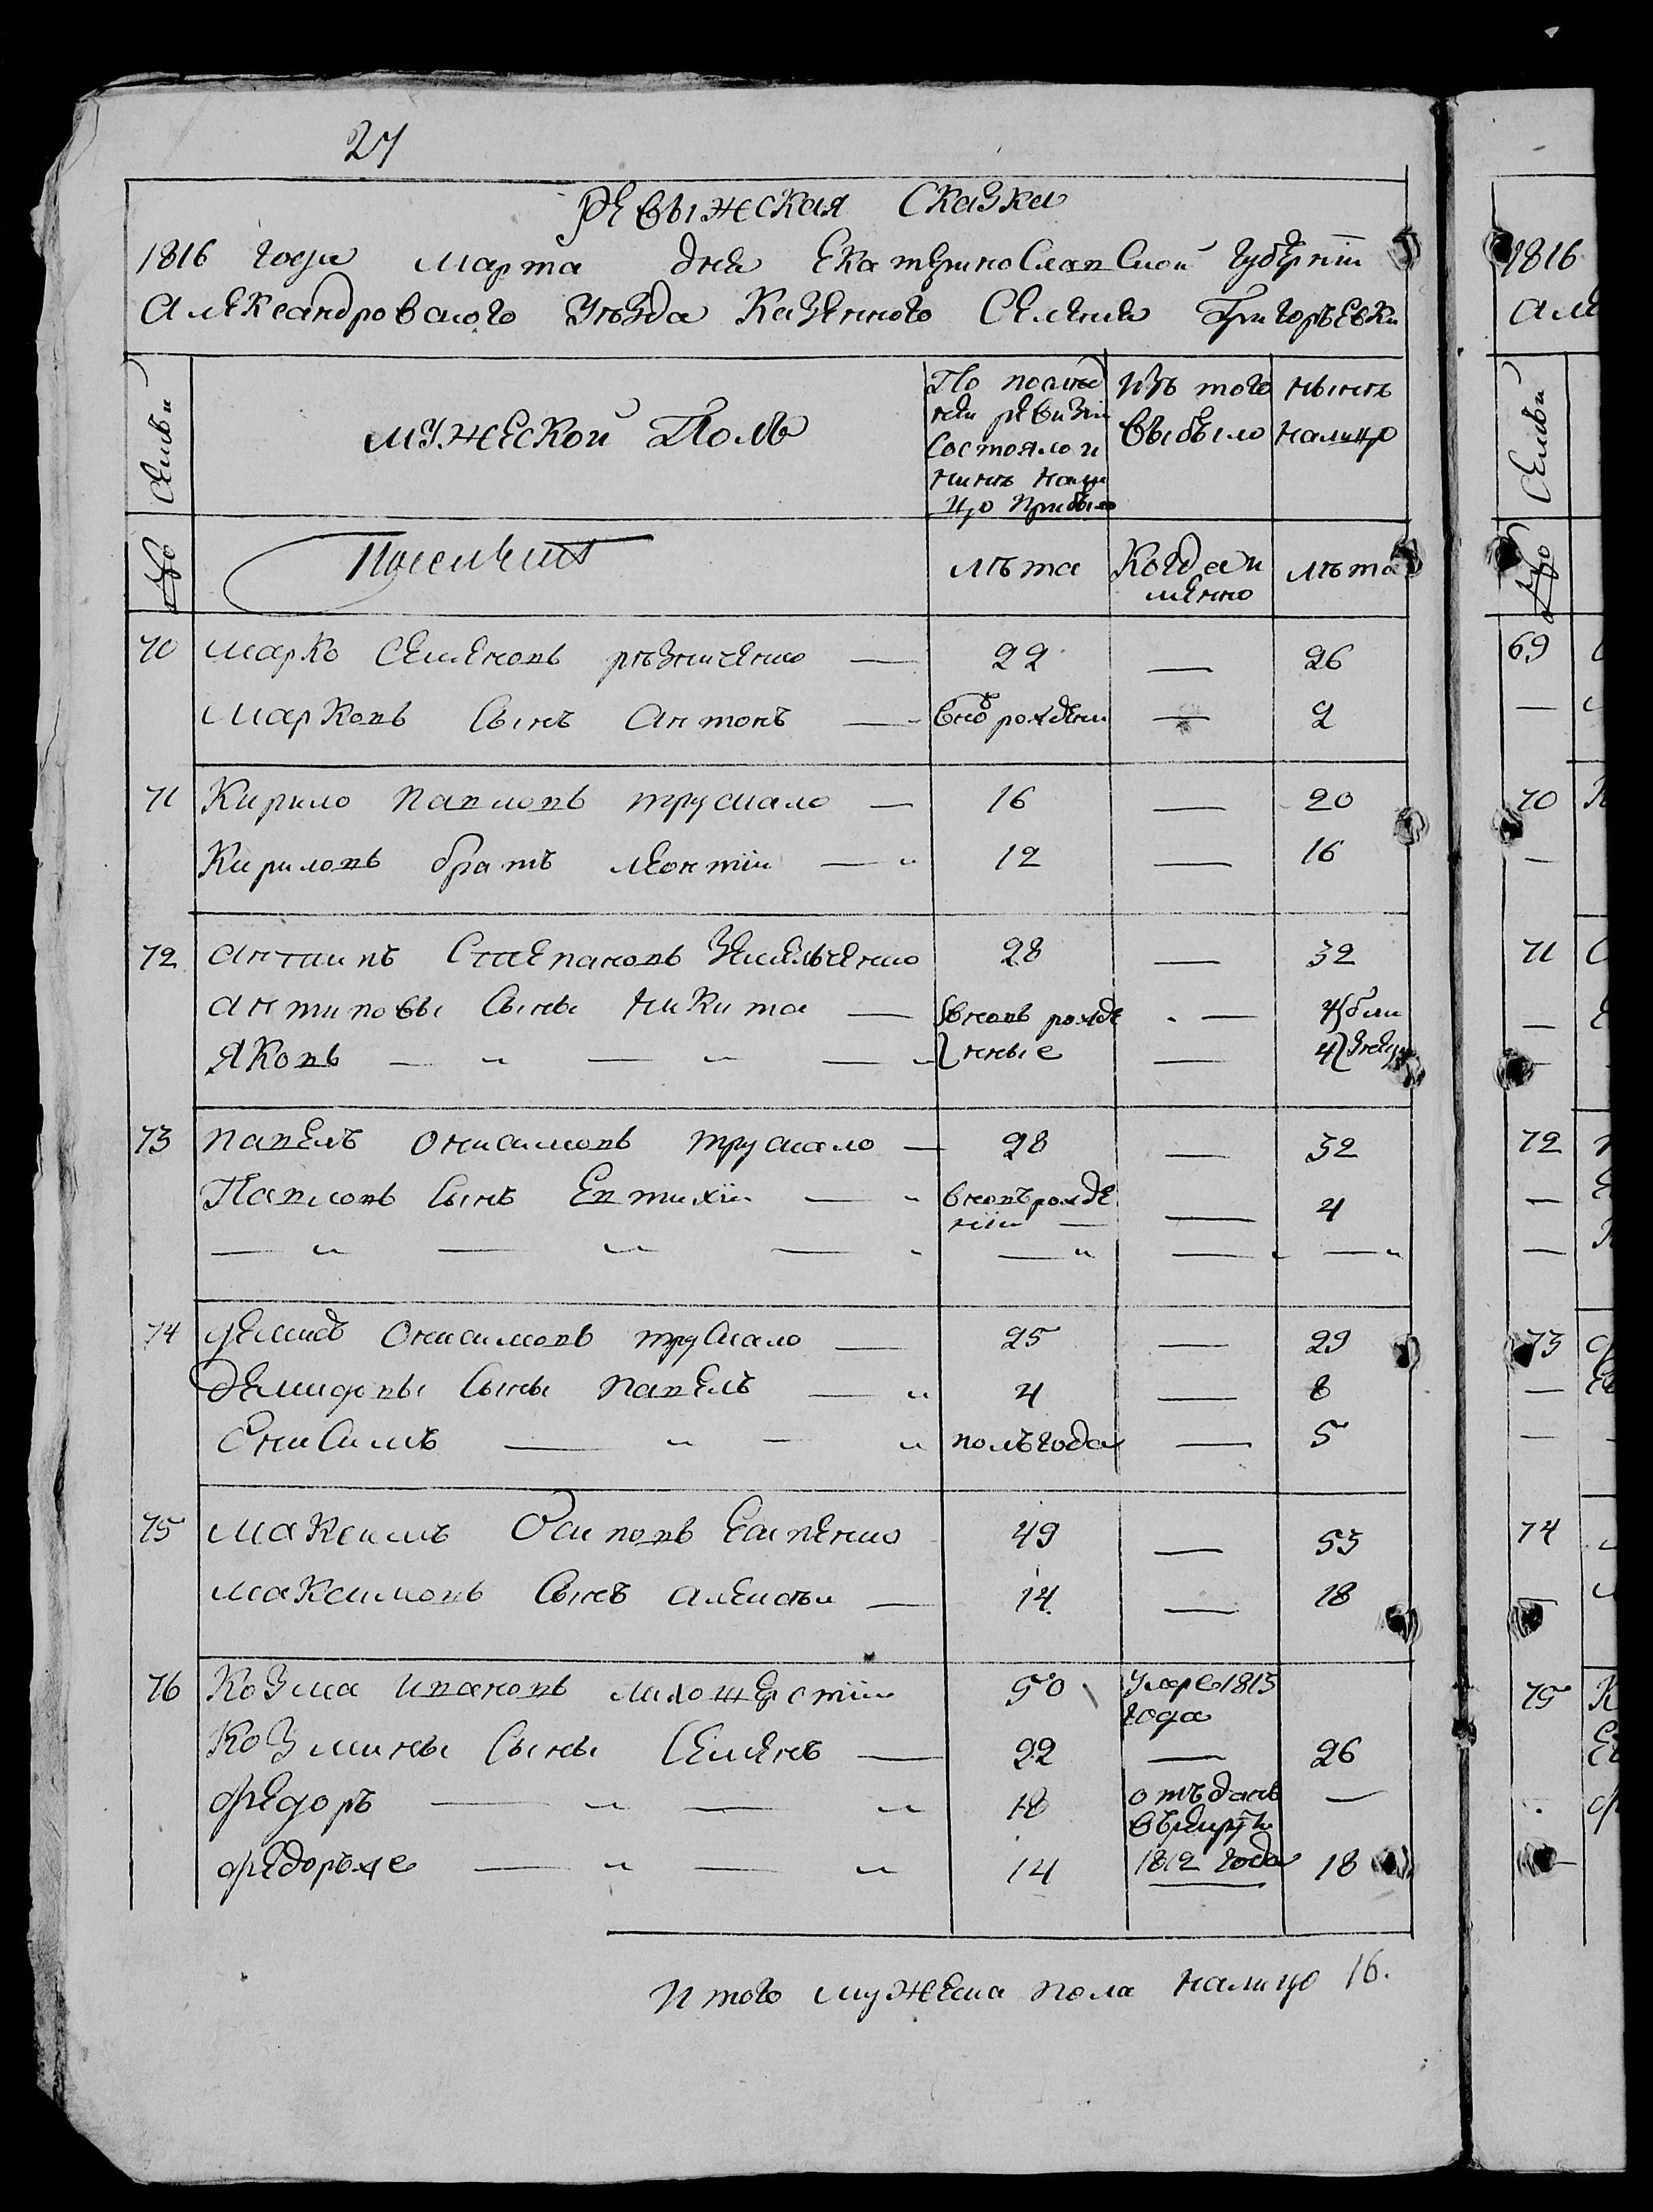 27
Ревыжская Сказка
1816 года Марта дня Екатеринославской губернiи
Александровского уѣзда Казенного Селения Григорьевки
Семьи
мужеской Полъ
По послѣд
ней ревизiи
Состояло и
нинѣ нали
цо Прибыло
Изъ того
выбыло
нынѣ
налицо
№
лѣта
Когда и
менно
лѣта
70 Марко Семеновъ рѣзниченко — 22 — 26
Марковъ Сынъ Антонъ — внов рожденн — 2
71 Кирило Павловъ трускало — 16 — 20
Кириловъ братъ леонтiи — 12 — 16
72 Антипъ Степановъ Земельченко 28 — 32
Антиповы Сыны Никита — вновь рожде — 4 близ
Яковъ — нные — 4 нецы
73 Павелъ Онисимовъ трускало — 28 — 32
Павловъ Сынъ Евтихiи — вновърожде
нiи — 4
74 Демидъ Онисимовъ трускало — 25 — 29
Демидовы Сыны Павелъ — 4 — 8
Онисимъ — полъгода — 5
75 Максимъ Осиповъ Есипенко 49 — 53
Максимовъ Сынъ Алексѣи — 14 — 18
76 Козма Ивановъ 50 умре 1815
года
Козмины Сыны Семенъ — 22 — 26
Федоръ — 18 отъданъ —
въ рекруты
Федоръже — 14 1812 года 18
Итого мужеска пола налицо 16.
1816
Але
Семьи
№
69
70
71
72
73
74
75